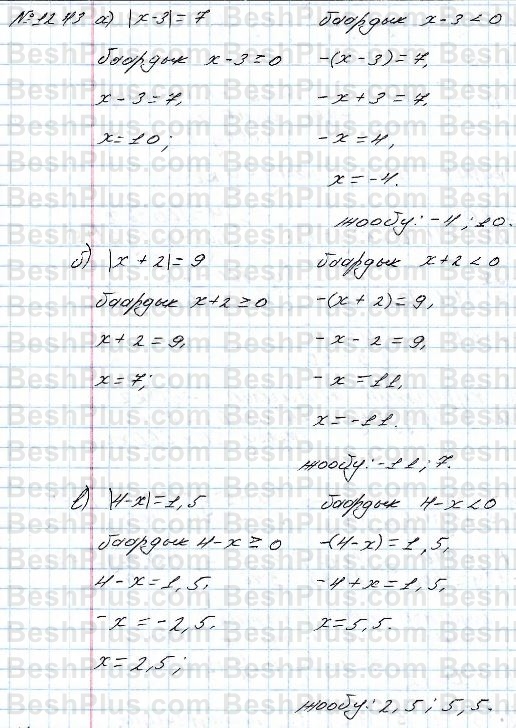 №1243 а) |x-3|=7
баардык x-3≥0
x-3=7,
x=10;
баардык x-3<0
-(x-3)=7,
-x+3=7,
-x=4,
x=-4.
жообу: -4; 10.
б) |x+2|=9
баардык x+2≥0
x+2=9,
x=7;
баардык x+2<0
-(x+2)=9,
-x-2=9,
-x=11,
x=-11.
жообу: -11; 7.
в) |4-x|=1,5
баардык 4-x≥0
4-x=1,5,
-x=-2,5.
x=2,5;
баардык 4-x<0
-(4-x)=1,5,
-4+x=1,5,
x=5,5.
жообу: 2,5; 5,5.
BeshPlus.com